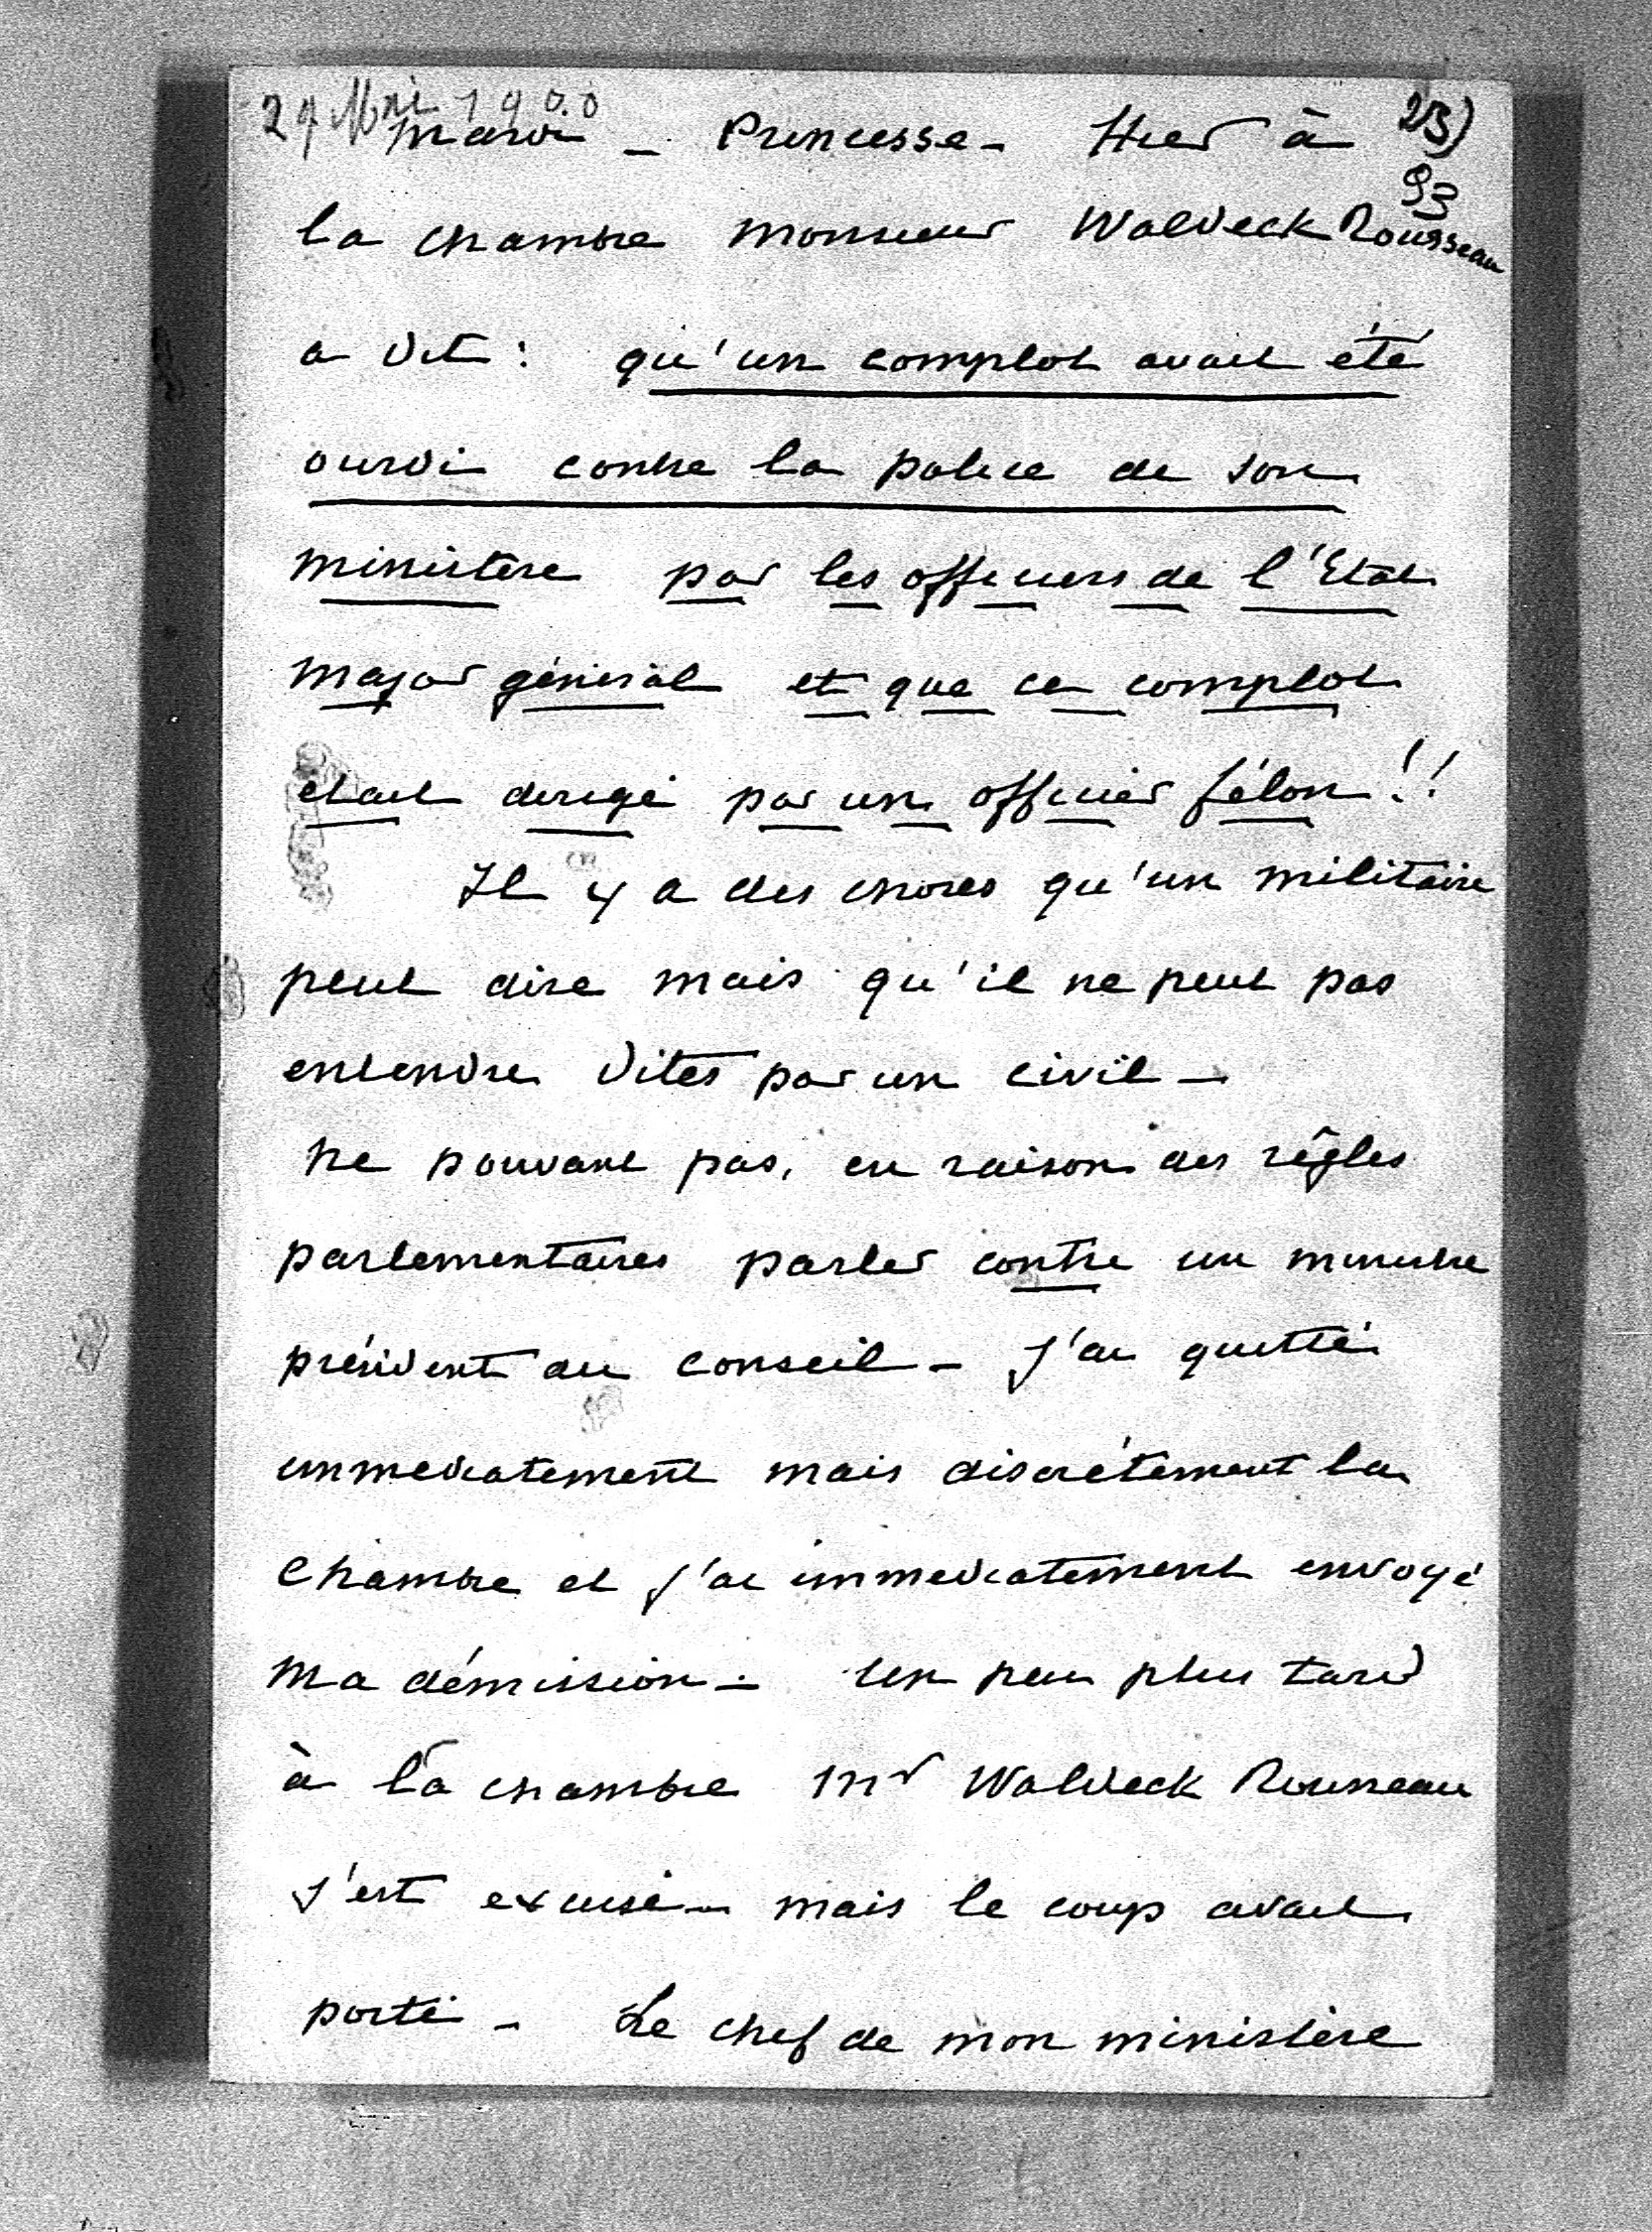 29 Mai 1900
Mardi - Princesse - Hier à 
la chambre monsieur Waldeck Rousseau
a dit : qu'un complot avait été
ourdi contre la police de son
ministère par les officiers de l'Etat
major général et que ce complot
était dirigé par un officier félon !!
Il y a des choses qu'un militaire
peut dire mais qu'il ne peut pas
entendre dites par un civil -
Ne pouvant pas, en raison des règles
parlementaires parler contre un ministre
président du conseil - J'ai quitté
immédiatement mais discrètement la
chambre et j'ai immédiatement envoyé
ma démission - Un peu plus tard
à la chambre Mr Waldeck Rousseau
s'est excusé - mais le coup avait
porté - Le chef de mon ministère